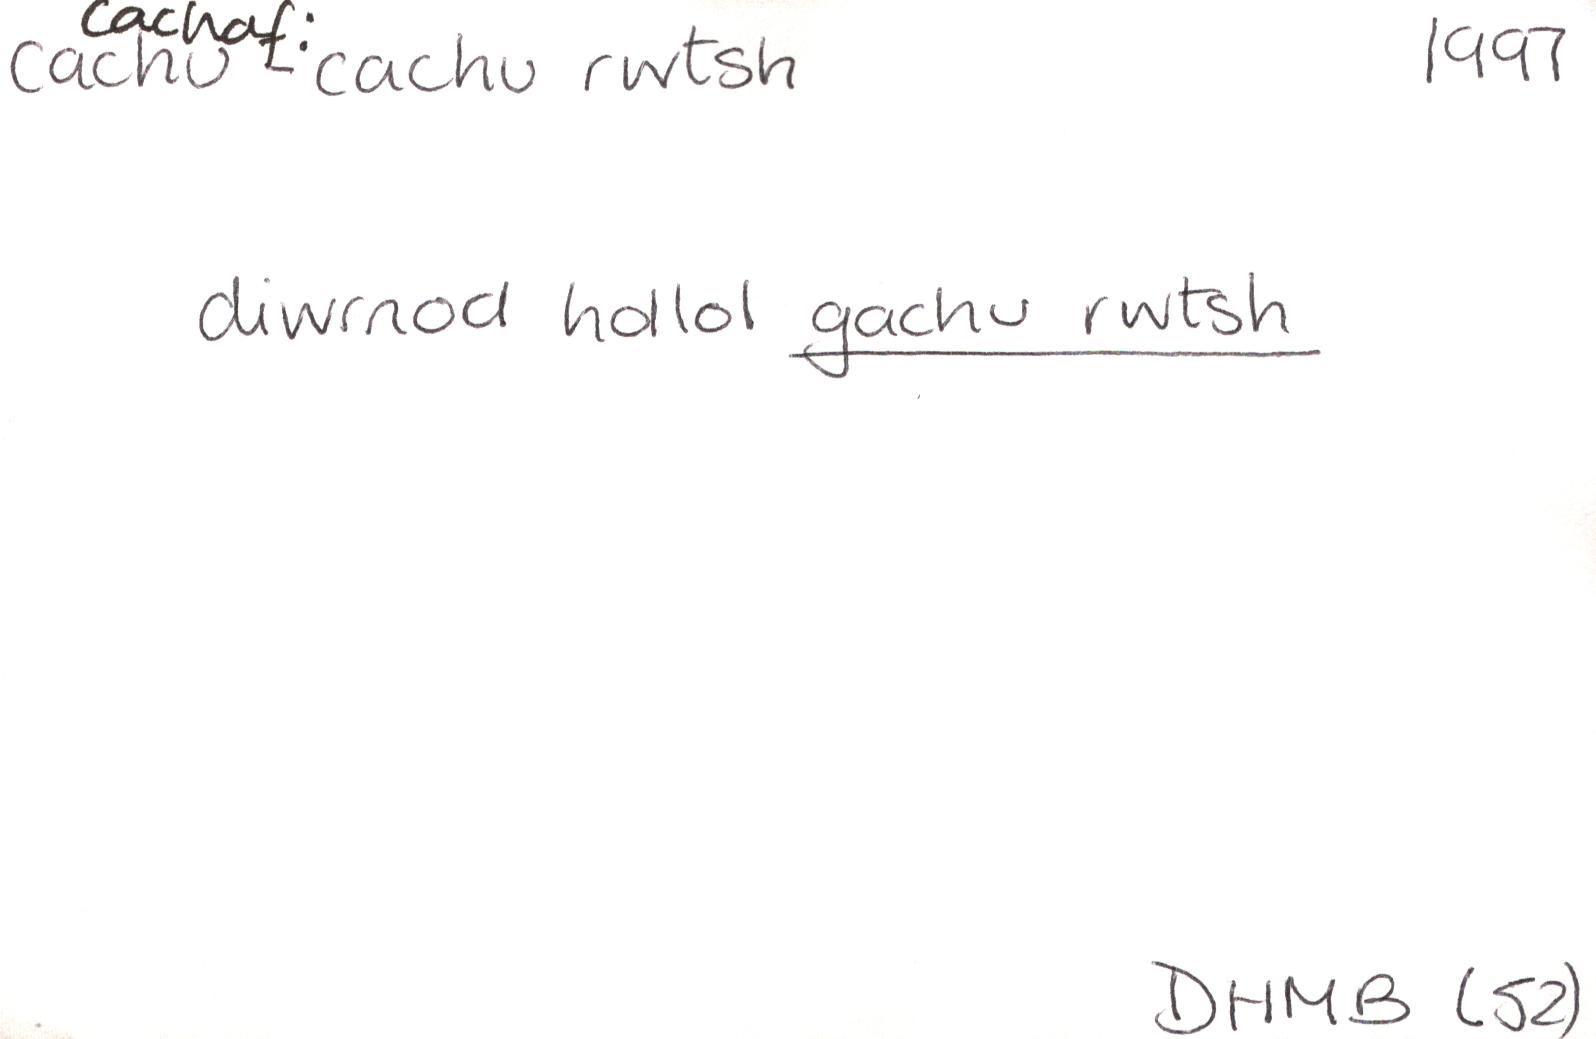 cachaf:
cachu - cachu rwtsh 1997
diwrnod hollol gachu rwtsh
DHMB (52)